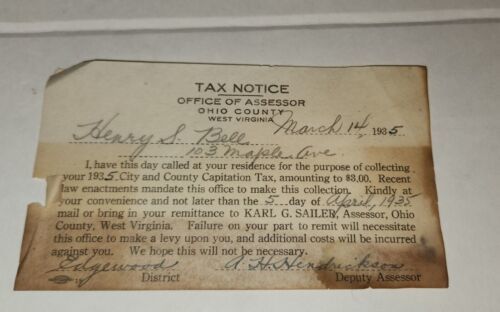 TAX NOTICE
OFFICE OF ASSESSOR
OHIO COUNTY
WEST VIRGINIA
March 14, 1935
Henry S. Bell
103 Maple Ave
I, have this day called at your residence for the purpose of collecting
your 1935 City and County Capitation Tax, amounting to $3.00. Recent
law enactments mandate this office to make this collection. Kindly at
your convenience and not later than the 5 day of April, 1935
mail or bring in your remittance to KARL G. SAILER, Assessor, Ohio
County, West Virginia. Failure on your part to remit will necessitate
this office to make a levy upon you, and additional costs will be incurred
against you. We hope this will not be necessary.
Edgewood A. H. Hendrickson
District Deputy Assessor